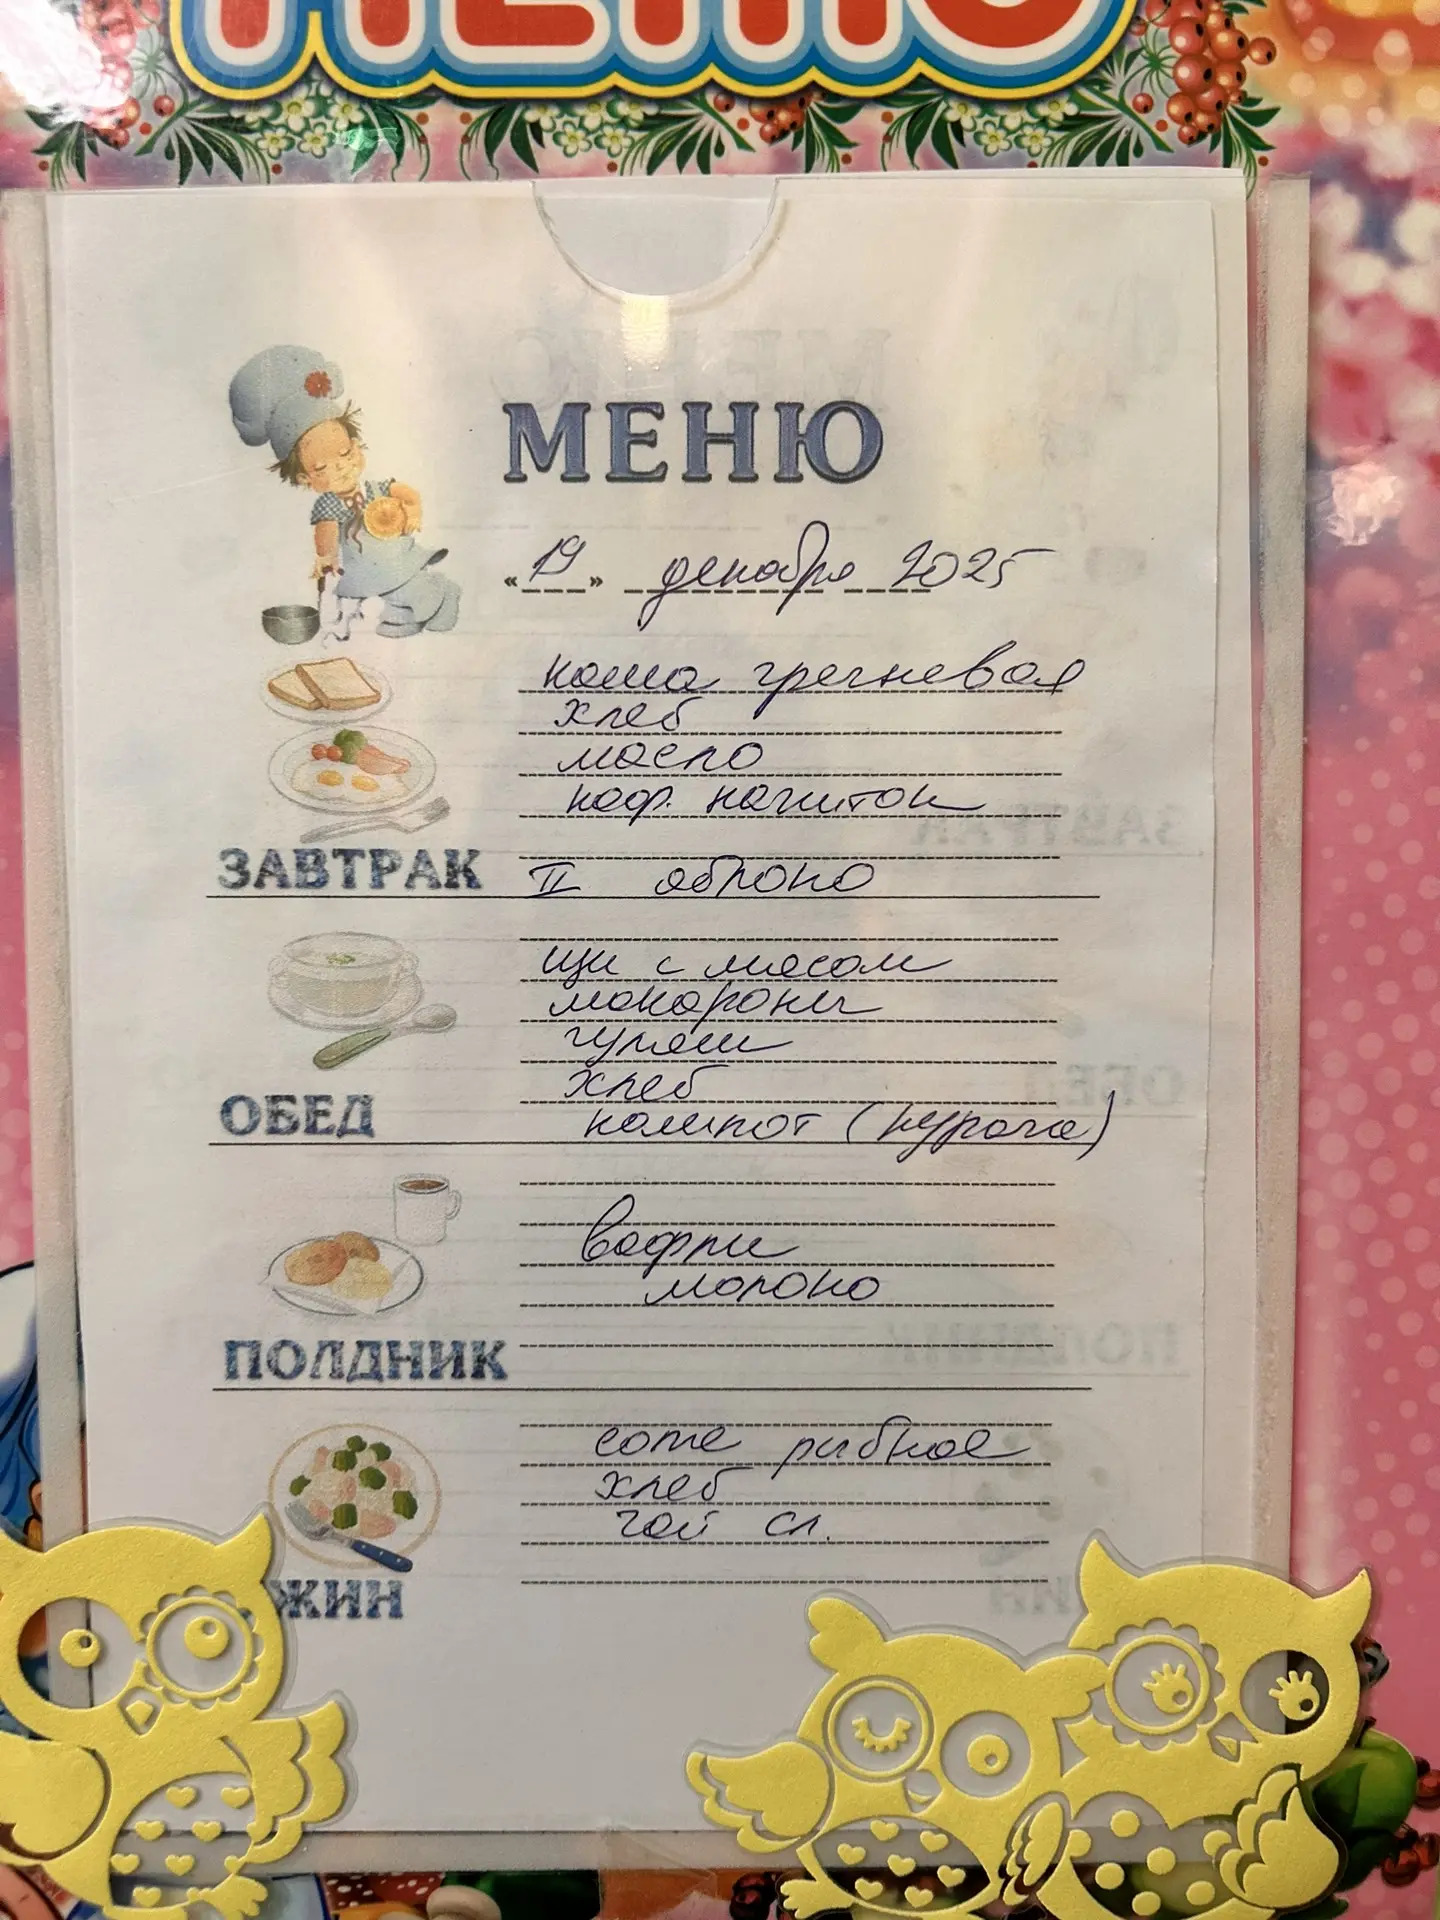 МЕНЮ
МЕНЮ
«19» декабря 2025
каша гречневая
хлеб
масло
коф. напиток
ЗАВТРАК II яблоко
щи с мясом
макароны
гуляш
хлеб
ОБЕД компот (курага)
вафли
молоко
ПОЛДНИК
соте рыбное
хлеб
чай сл.
ЖИН